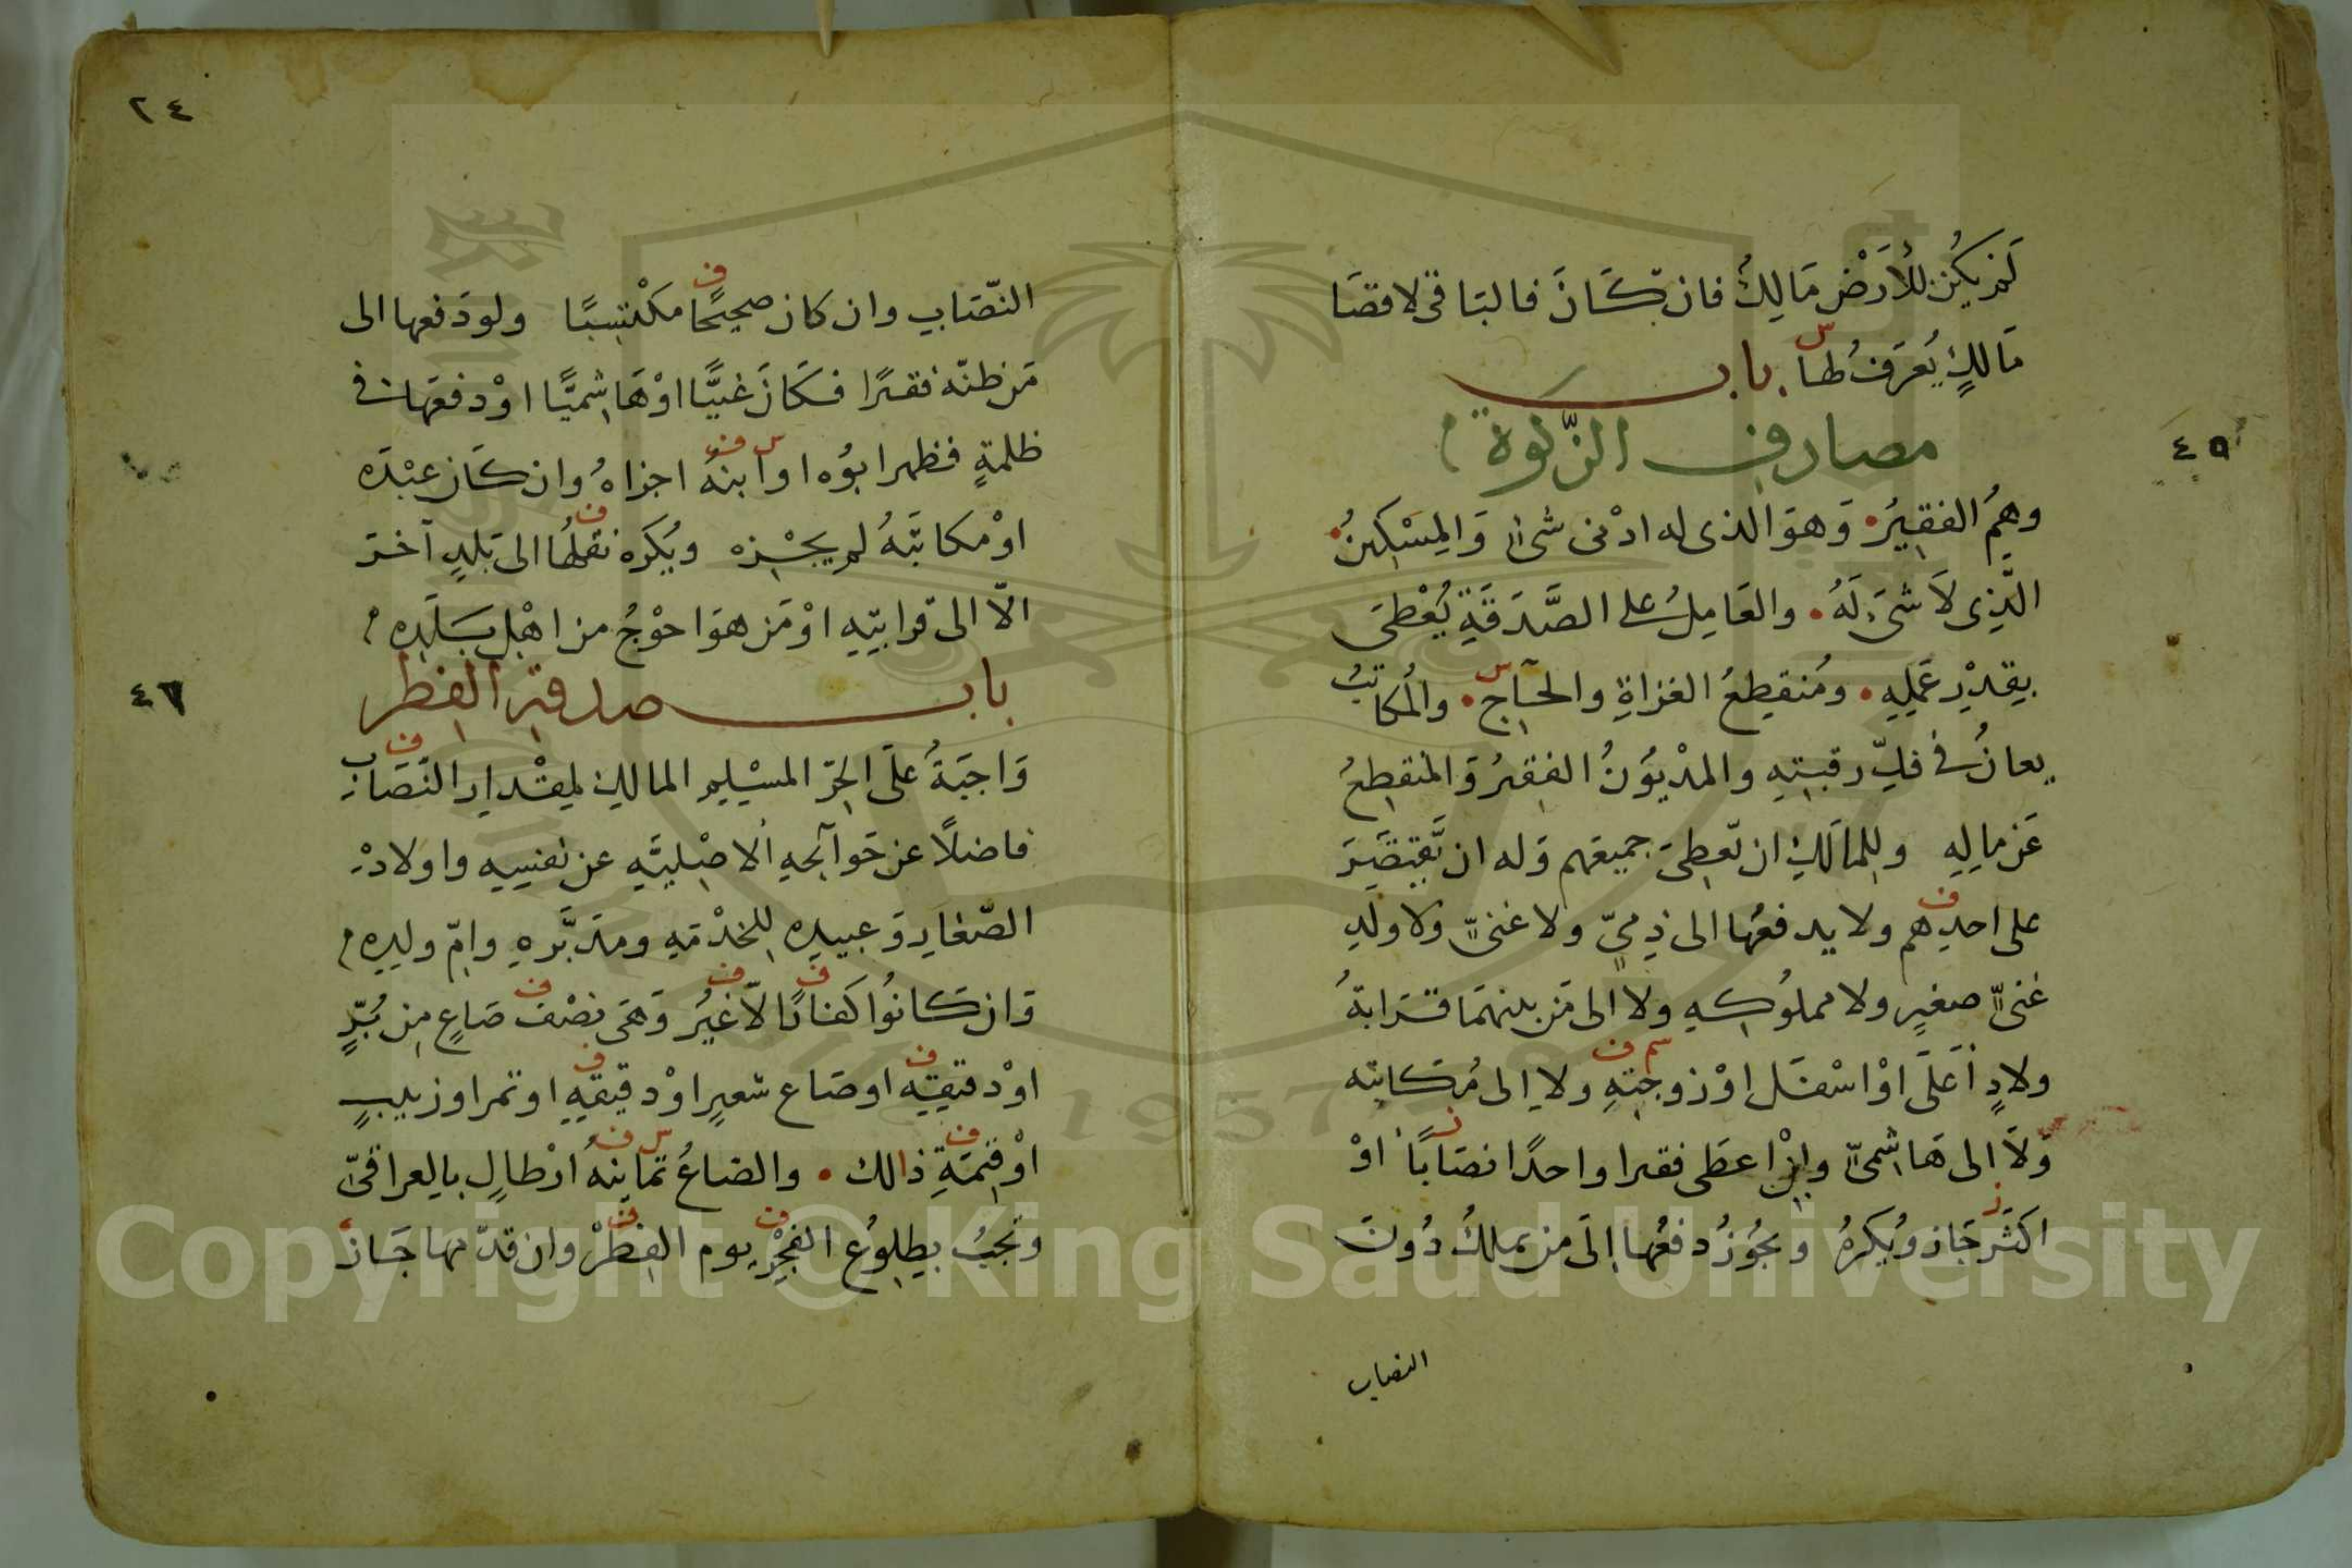 لَم يكُن للأرَضْ مَالِكٌ فان كَانَ فالبَاقى لاقصَا
مَالكٍ يُعرَفُ لهَا باب
س
مصارف الزكوة
٤٥
وهمُ الفقيرُ وَهوَ الذى له ادْنى شىٍٔ وَالمِسْكينُ
الَّذِى لاَ شىَٔ لَهُ والعَامِلُ على الصَّدَقَةِ يُعْطىَ
بقدْرِ عَمَلِهِ ومُنقطِعُ الغزاةِ والحآج والمُكاتبُ
س
يعانُ فى فكِّ رقبتِهِ والمدْيوُنُ الفقيرُ وَالمنقطِعُ
عَن مالِهِ وللمالكِ ان تعطِىَ جميعَهم وَله ان يَّقتصَِرَ
على احدِهم ولا يدفعُها الى ذِمىٍّ ولا غنىٍّ وَلا ولَدِ
ف
غنىٍّ صغيرٍ ولا مملوُكهِ ولا الى مَن بينهمَا قرَابةُ
ولادٍ اَعَلىَ اوْ اسْفَل اوْ زوجتِهِ ولا الى مُكاتبه
سم ف
وَلاَ الى هَاشمىٍّ وإنْ اعطَى فقيرا واحدًا نصَابًا اوْ
اكثَر جَاز ويُكرَهُ ويجُوزُ دفعُها اِلَى من يملكُ دُونَ
ز
النصاب
٢٤
النّصَابِ وان كان صحيحًا مكْتسِبًا ولودَفعها الى
ف
مَن ظنّه فقيرًا فكَانَ غنيًّا اوْهَاشميًّا اوْدفعَها فى
ظلمةٍ فظهر ابوُه اوابنهُ اجزاهُ وان كَان عبْدَه
س ف
اوْمكاتبَهُ لم يجْزِه ويُكرَه نقلُها الى بَلدٍ آخَر
ف
الاّ الى قرابتِهِ اوْمَن هوَ احوْجُ من اهْلِ بَلَدِه
باب صدقة الفطر
٤٦
وَاجبَةُ علَى الحرّ المسْلِمِ المالكِ لمِقْدارِ النّصَاب
ف
فاضلاً عن حَوآئجِهِ الاصْليَّهِ عن نفسِهِ واولادْه
الصّغَارِ وَعبيدِه للخدْمَةِ ومدَبَّرهِ وامّ ولدِهِ
وَان كَانوُا كفارًا لاّغيُر وَهىَ نصْف صَاعٍ مِن بُرٍّ
ف ف ف
اوْدقيقِه اوصَاع شعيرٍ اوْدقيقِهِ اوتمر اوزبيبٍ
ف ف
اوْقيمَةِ ذالك والصَاعُ ثمانيةُ ارْطالٍ بالعراقىّ
ف س ف
وتجبُ بطلوُعِ الفجْرِ يوم الفِطْر وان قدّمها جَاز
ف ف
Copyright © King Saud University
1957